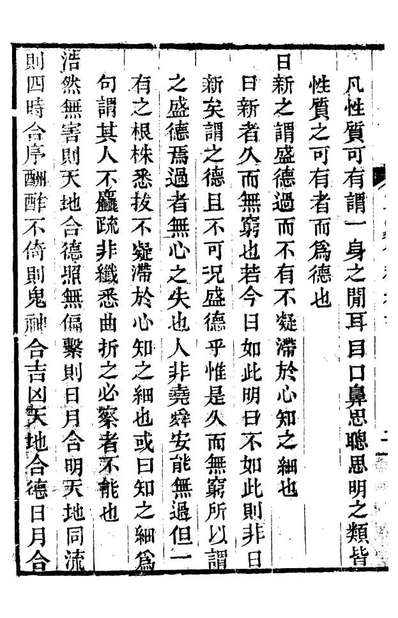 凡性質可有謂一身之閒耳目口鼻思聰思明之類皆
性質之可有者而為德也
日新之謂盛德過而不有不凝滯於心知之細也
日新者久而無窮也若今日如此明日不如此則非日
新矣謂之德且不可況盛德乎惟是久而無窮所以謂
之盛德焉過者無心之失也人非堯舜安能無過但一
有之根株悉拔不凝滯於心知之細也或曰知之細為
句謂其人不麤疏非纖悉曲折之必察者不能也
浩然無害則天地合德照無偏繫則日月合明天地同流
則四時合序酬酢不倚則鬼神合吉凶天地合德日月合